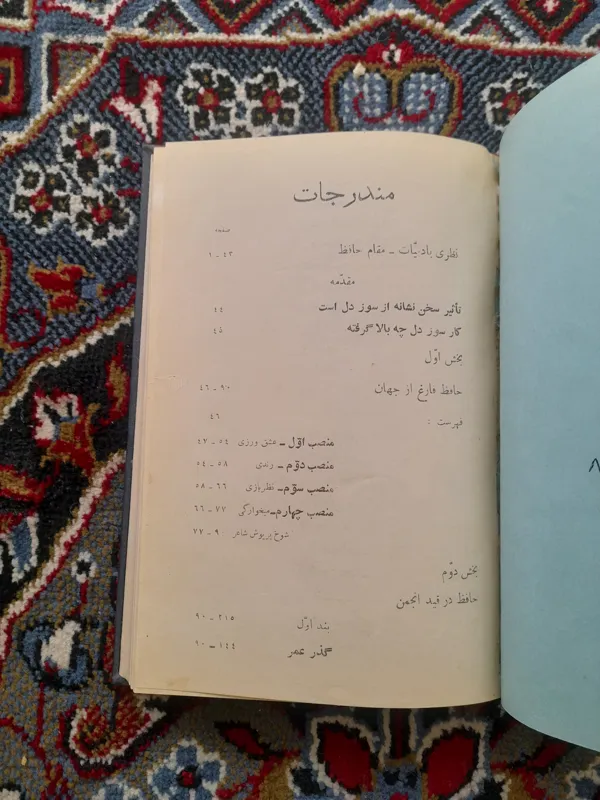 مندرجات
صفحه
نظری بادبیّات ـ مقام حافظ ۴۳ - ۱
مقدّمه
تأثیر سخن نشانه از سوز دل است ۴۴
کار سوز دل چه بالا گرفته ۴۵
بخش اوّل
حافظ فارغ از جهان ۹۰ - ۴۶
فهرست : ۴۶
منصب اوّل ـ عشق ورزی ۵۴ - ۴۷
منصب دوّم ـ رندی ۵۸ - ۵۴
منصب سوّم ـ نظربازی ۶۶ - ۵۸
منصب چهارم ـ میخوارگی ۷۷ - ۶۶
شوخ پریوش شاعر ۹ - ۷۷
بخش دوّم
حافظ در قید انجمن
بند اوّل ۲۱۵ - ۹۰
گذر عمر ۱۴۴ - ۹۰